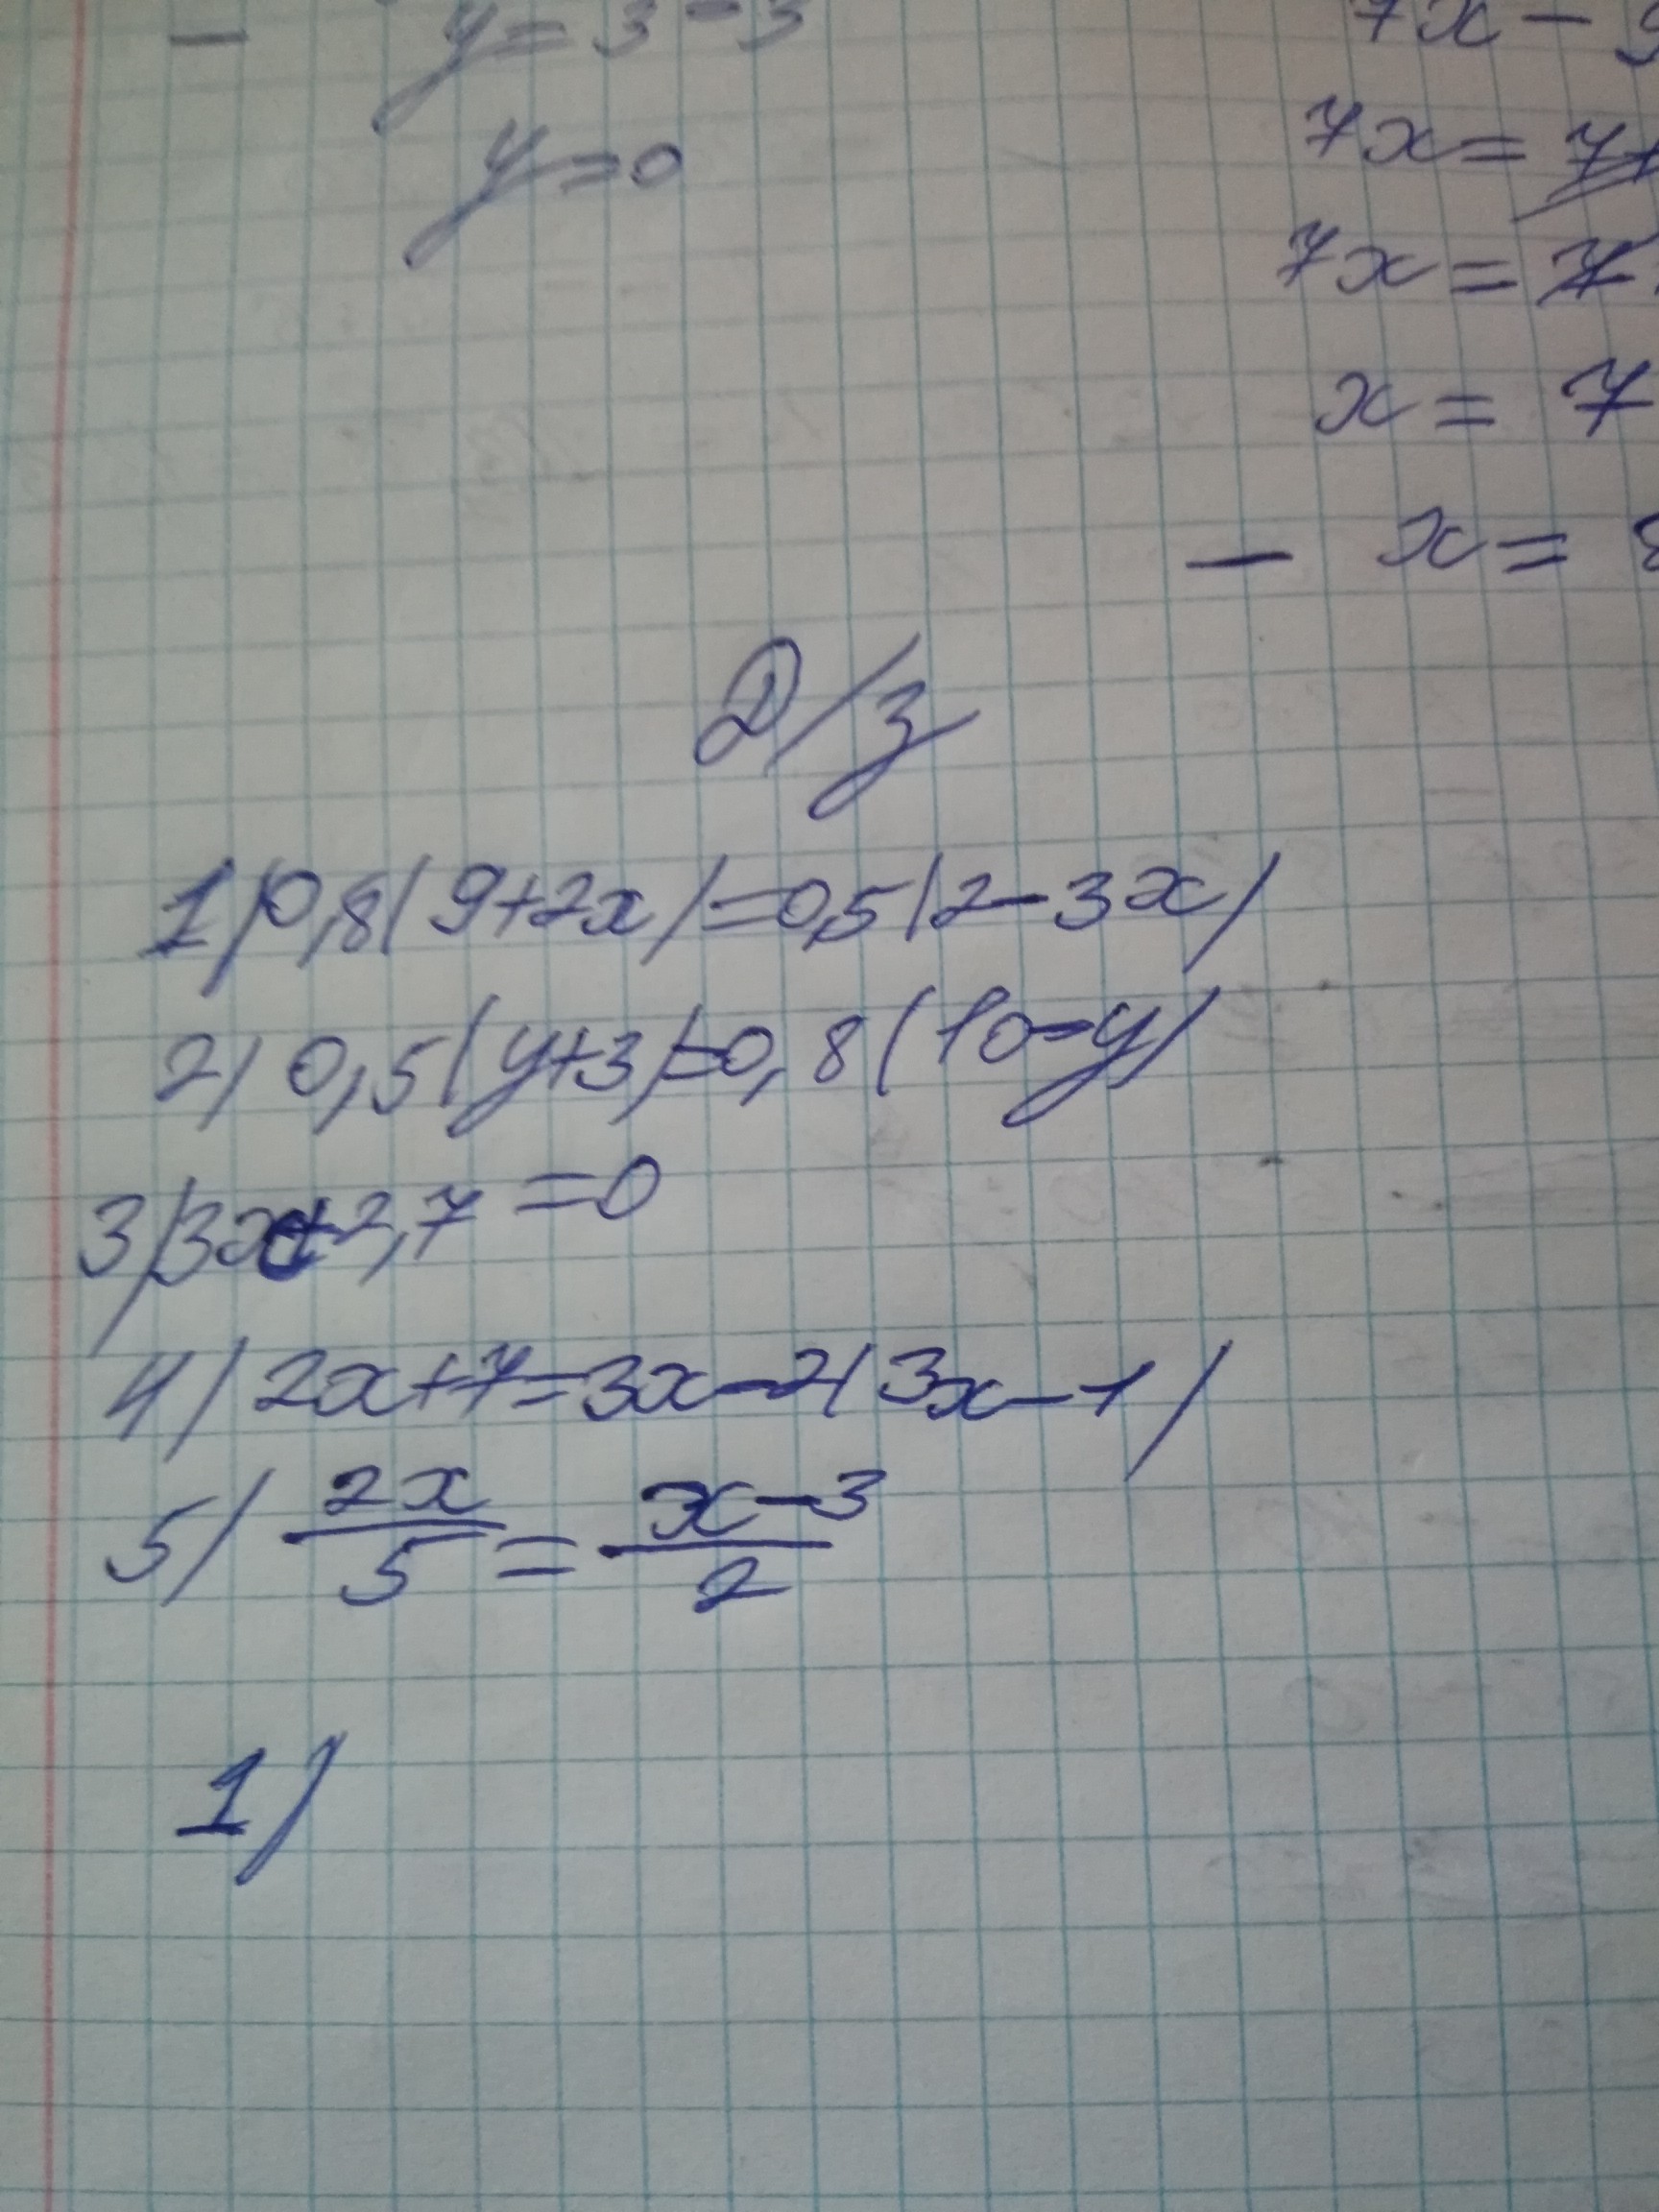 y = 3 - 3
7x - 9
y = 0
7x = 7+
7x = 7
x = 7
- x = 8
Д/з
1) 0,8(9+2x)=0,5(2-3x)
2) 0,5(y+3)=0,8(10-y)
3) 3x+2,7=0
4) 2x+7=3x-2(3x-1)
5) 2x/5 = x-3/2
1)